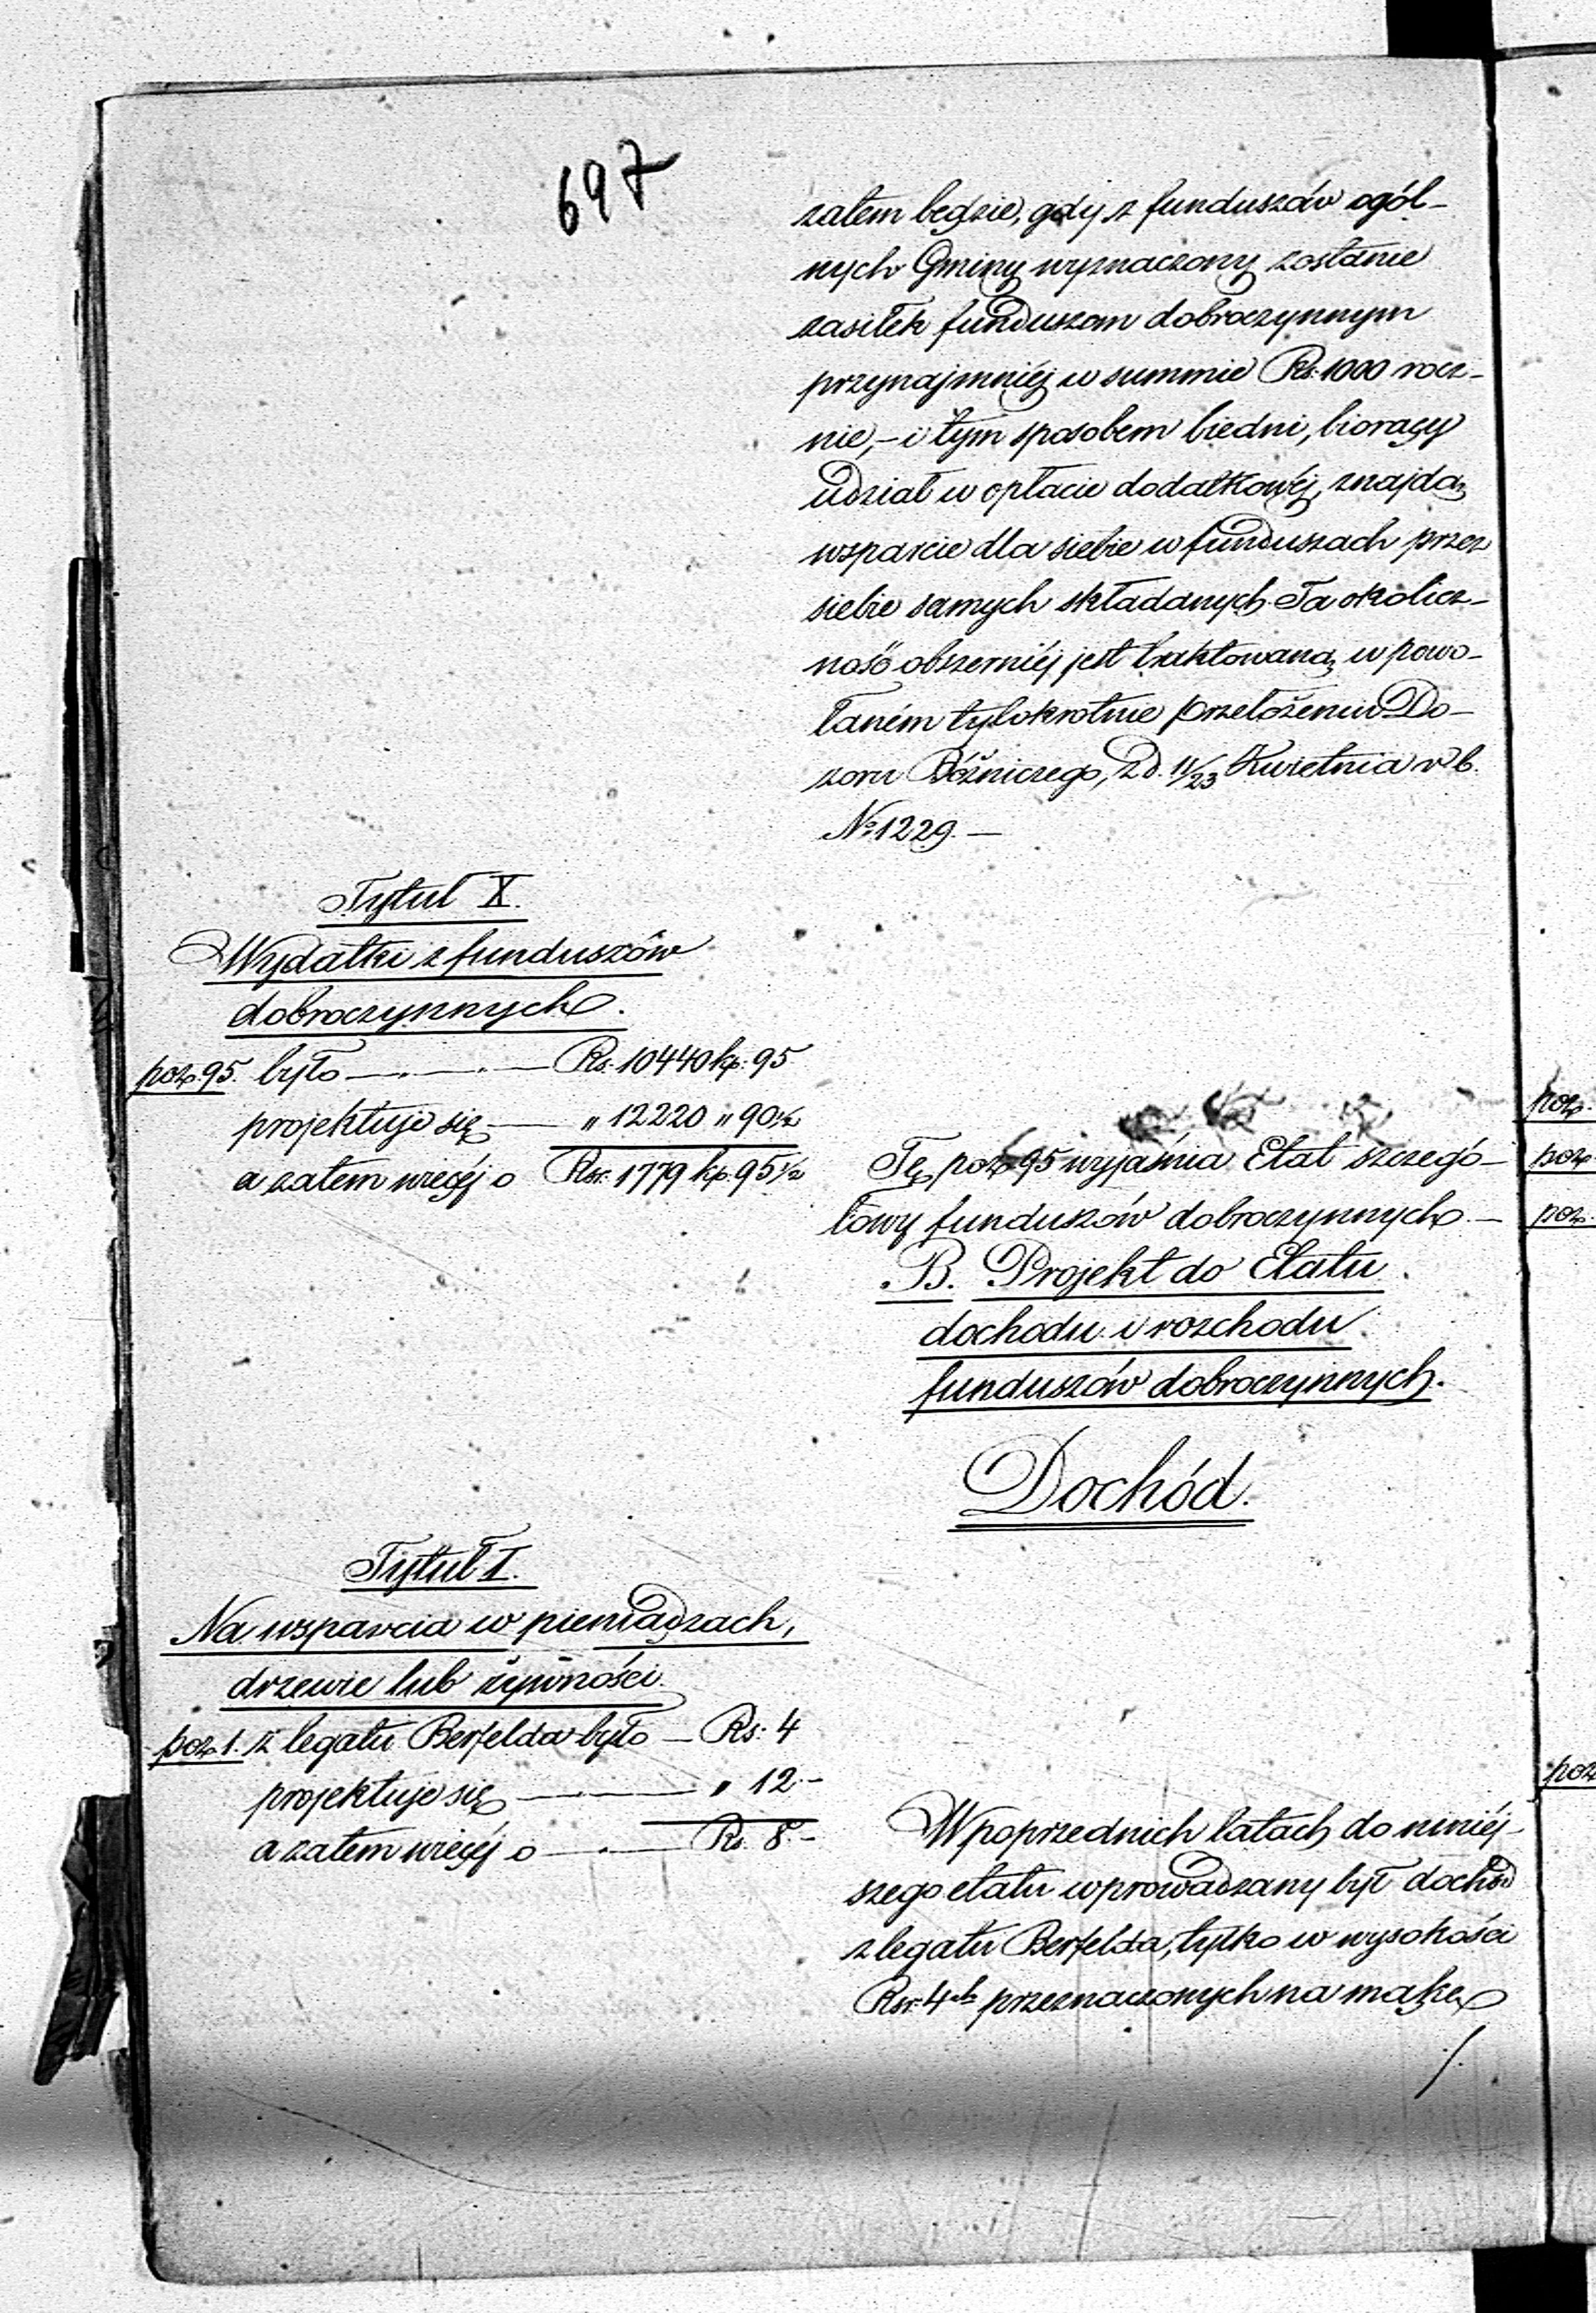 697
zatem będzie, gdy z funduszów ogól-
nych Gminy wyznaczony zostanie
zasiłek funduszom dobroczynnym
przynajmniéj w summie Rs. 1000 rocz-
nie, - i tym sposobem biedni, biorący
udział w opłacie dodatkowéj, znajdą
wsparcie dla siebie w funduszach przez
siebie samych składanych. Ta okolicz-
ność obszerniéj jest traktowaną w powo-
łaném tylokrotnie przełożeniu Do-
zoru Bóżniczego, z d. 11/23 Kwietnia r b.
No 1229. —
Tytuł X.
Wydatki z funduszów
dobroczynnych.
poz. 95. było — Rs. 10440 kp: 95
projektuje się — " 12220 " 90½
a zatem więcéj o Rsr. 1779 kp. 95½
Tę poz 95 wyjaśnia Etat szczegó-
łowy funduszów dobroczynnych. —
B. Projekt do Etatu
dochodu i rozchodu
funduszów dobroczynnych.
Dochód.
Tytuł I.
Na wsparcia w pieniądzach,
drzewie lub żywności.
poz 1. z legatu Berfelda było — Rs: 4
projektuje się — " 12 -
a zatem więcéj o — Rs. 8. -
W poprzednich latach do niniéj-
szego etatu wprowadzany był dochód
z legatu Berfelda, tylko w wysokości
Rsr. 4ch przeznaczonych na mąkę
./.
poz.
poz.
poz.
poz